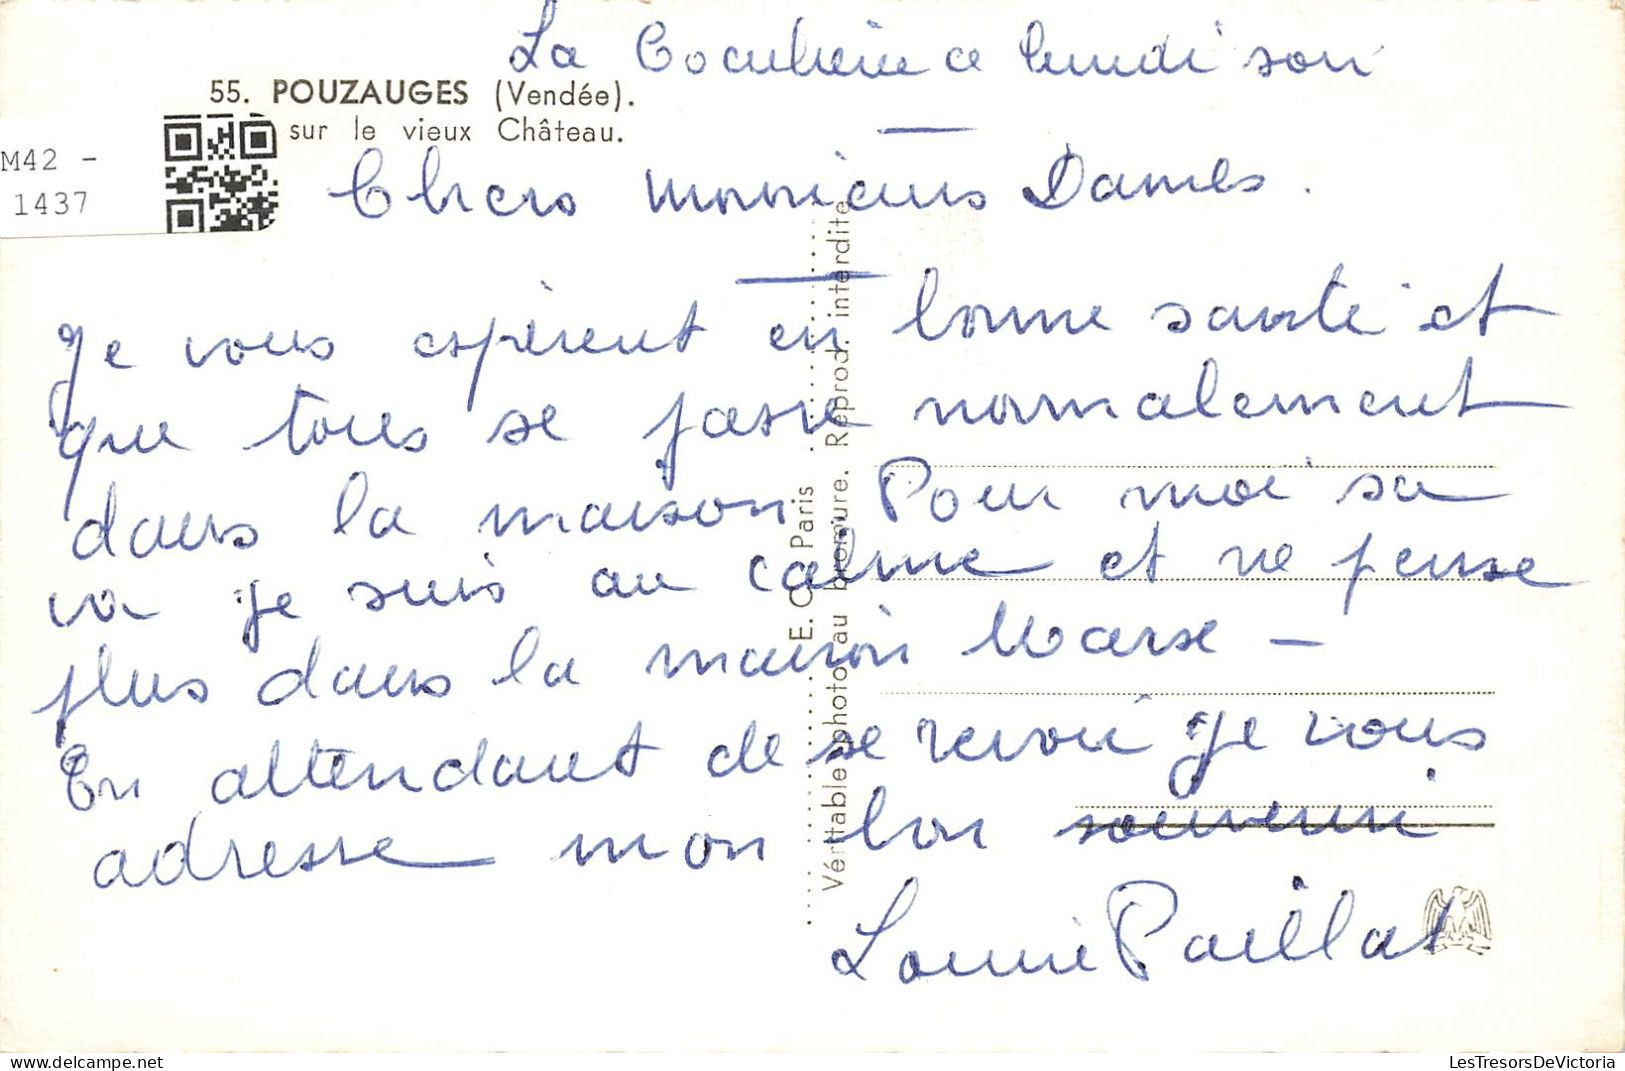 La Coculière ce lundi soir
55. POUZAUGES (Vendée).
sur le vieux Château.
M42 -
1437
Chers Monsieurs Dames.
Je vous espèrent en bonne santé et
que tous se passe normalement
dans la maison. Pour moi sa
va je suis au calme et ne pense
plus dans la maison Marse —
En attendant de se revoir je vous
adresse mon bon souvenir
Paillat
E. C. Paris
Véritable photo au bromure. Réprod. interdite
LesTresorsDeVictoria